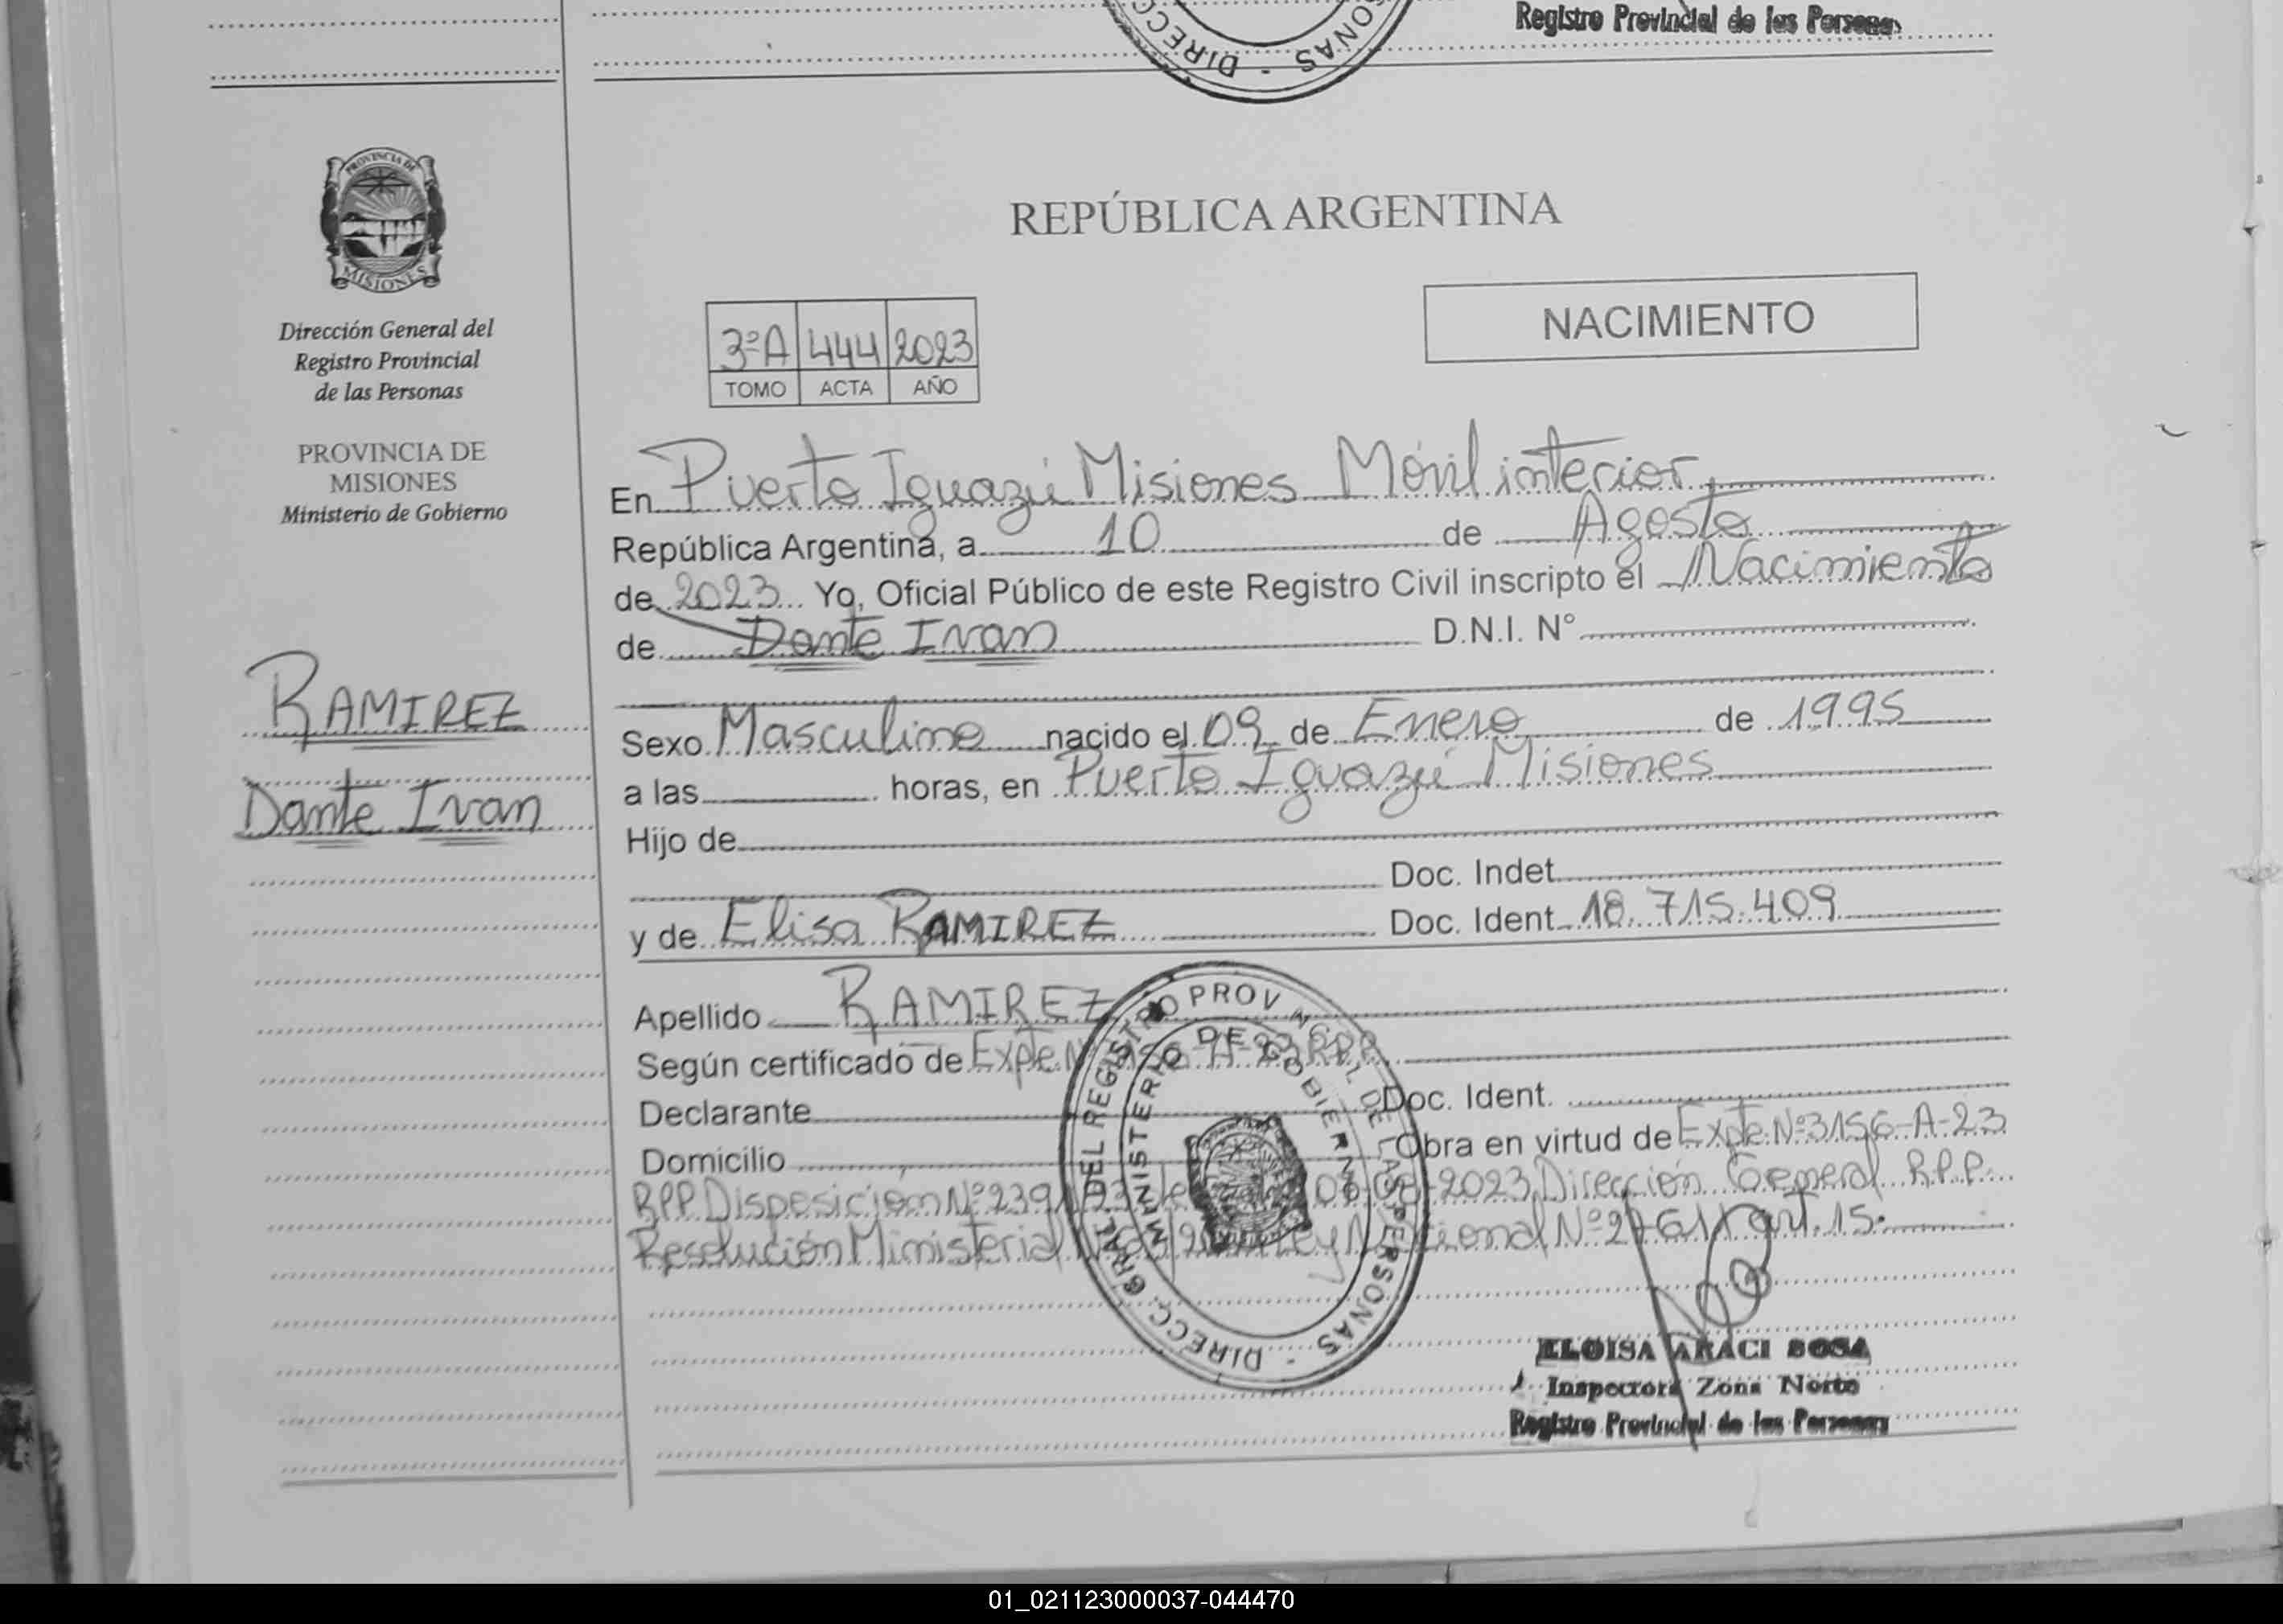 Registro Provincial de las Personas
DIRECC
ONAS
PROVINCIA DE
MISIONES
Dirección General del
Registro Provincial
de las Personas
PROVINCIA DE
MISIONES
Ministerio de Gobierno
RAMIREZ
Dante Ivan
REPÚBLICA ARGENTINA
NACIMIENTO
3ºA 444 2023
TOMO ACTA AÑO
En Puerto Iguazú Misiones Móvil interior
República Argentina, a 10 de Agosto
de 2023 Yo, Oficial Público de este Registro Civil inscripto el Nacimiento
de Dante Ivan D.N.I. N°
Sexo Masculino nacido el 09 de Enero de 1995
a las horas, en Puerto Iguazú Misiones
Hijo de
Doc. Indet.
y de Elisa RAMIREZ Doc. Ident. 18.715.409
Apellido RAMIREZ
Según certificado de Expte.Nº 3156-A-23 RPP.
Declarante Doc. Ident.
Domicilio Obra en virtud de Expte.Nº3156-A-23
RPP Disposición Nº239 2023, Dirección General R.P.P.
Resolución Ministerial Ley Nacional Nº 27611 art. 15.
DIRECC. GRAL DEL REGISTRO PROV DE LAS PERSONAS
MINISTERIO DE GOBIERNO
ELOISA ARACI SOSA
Inspectora Zona Norte
Registro Provincial de las Personas
01_021123000037-044470